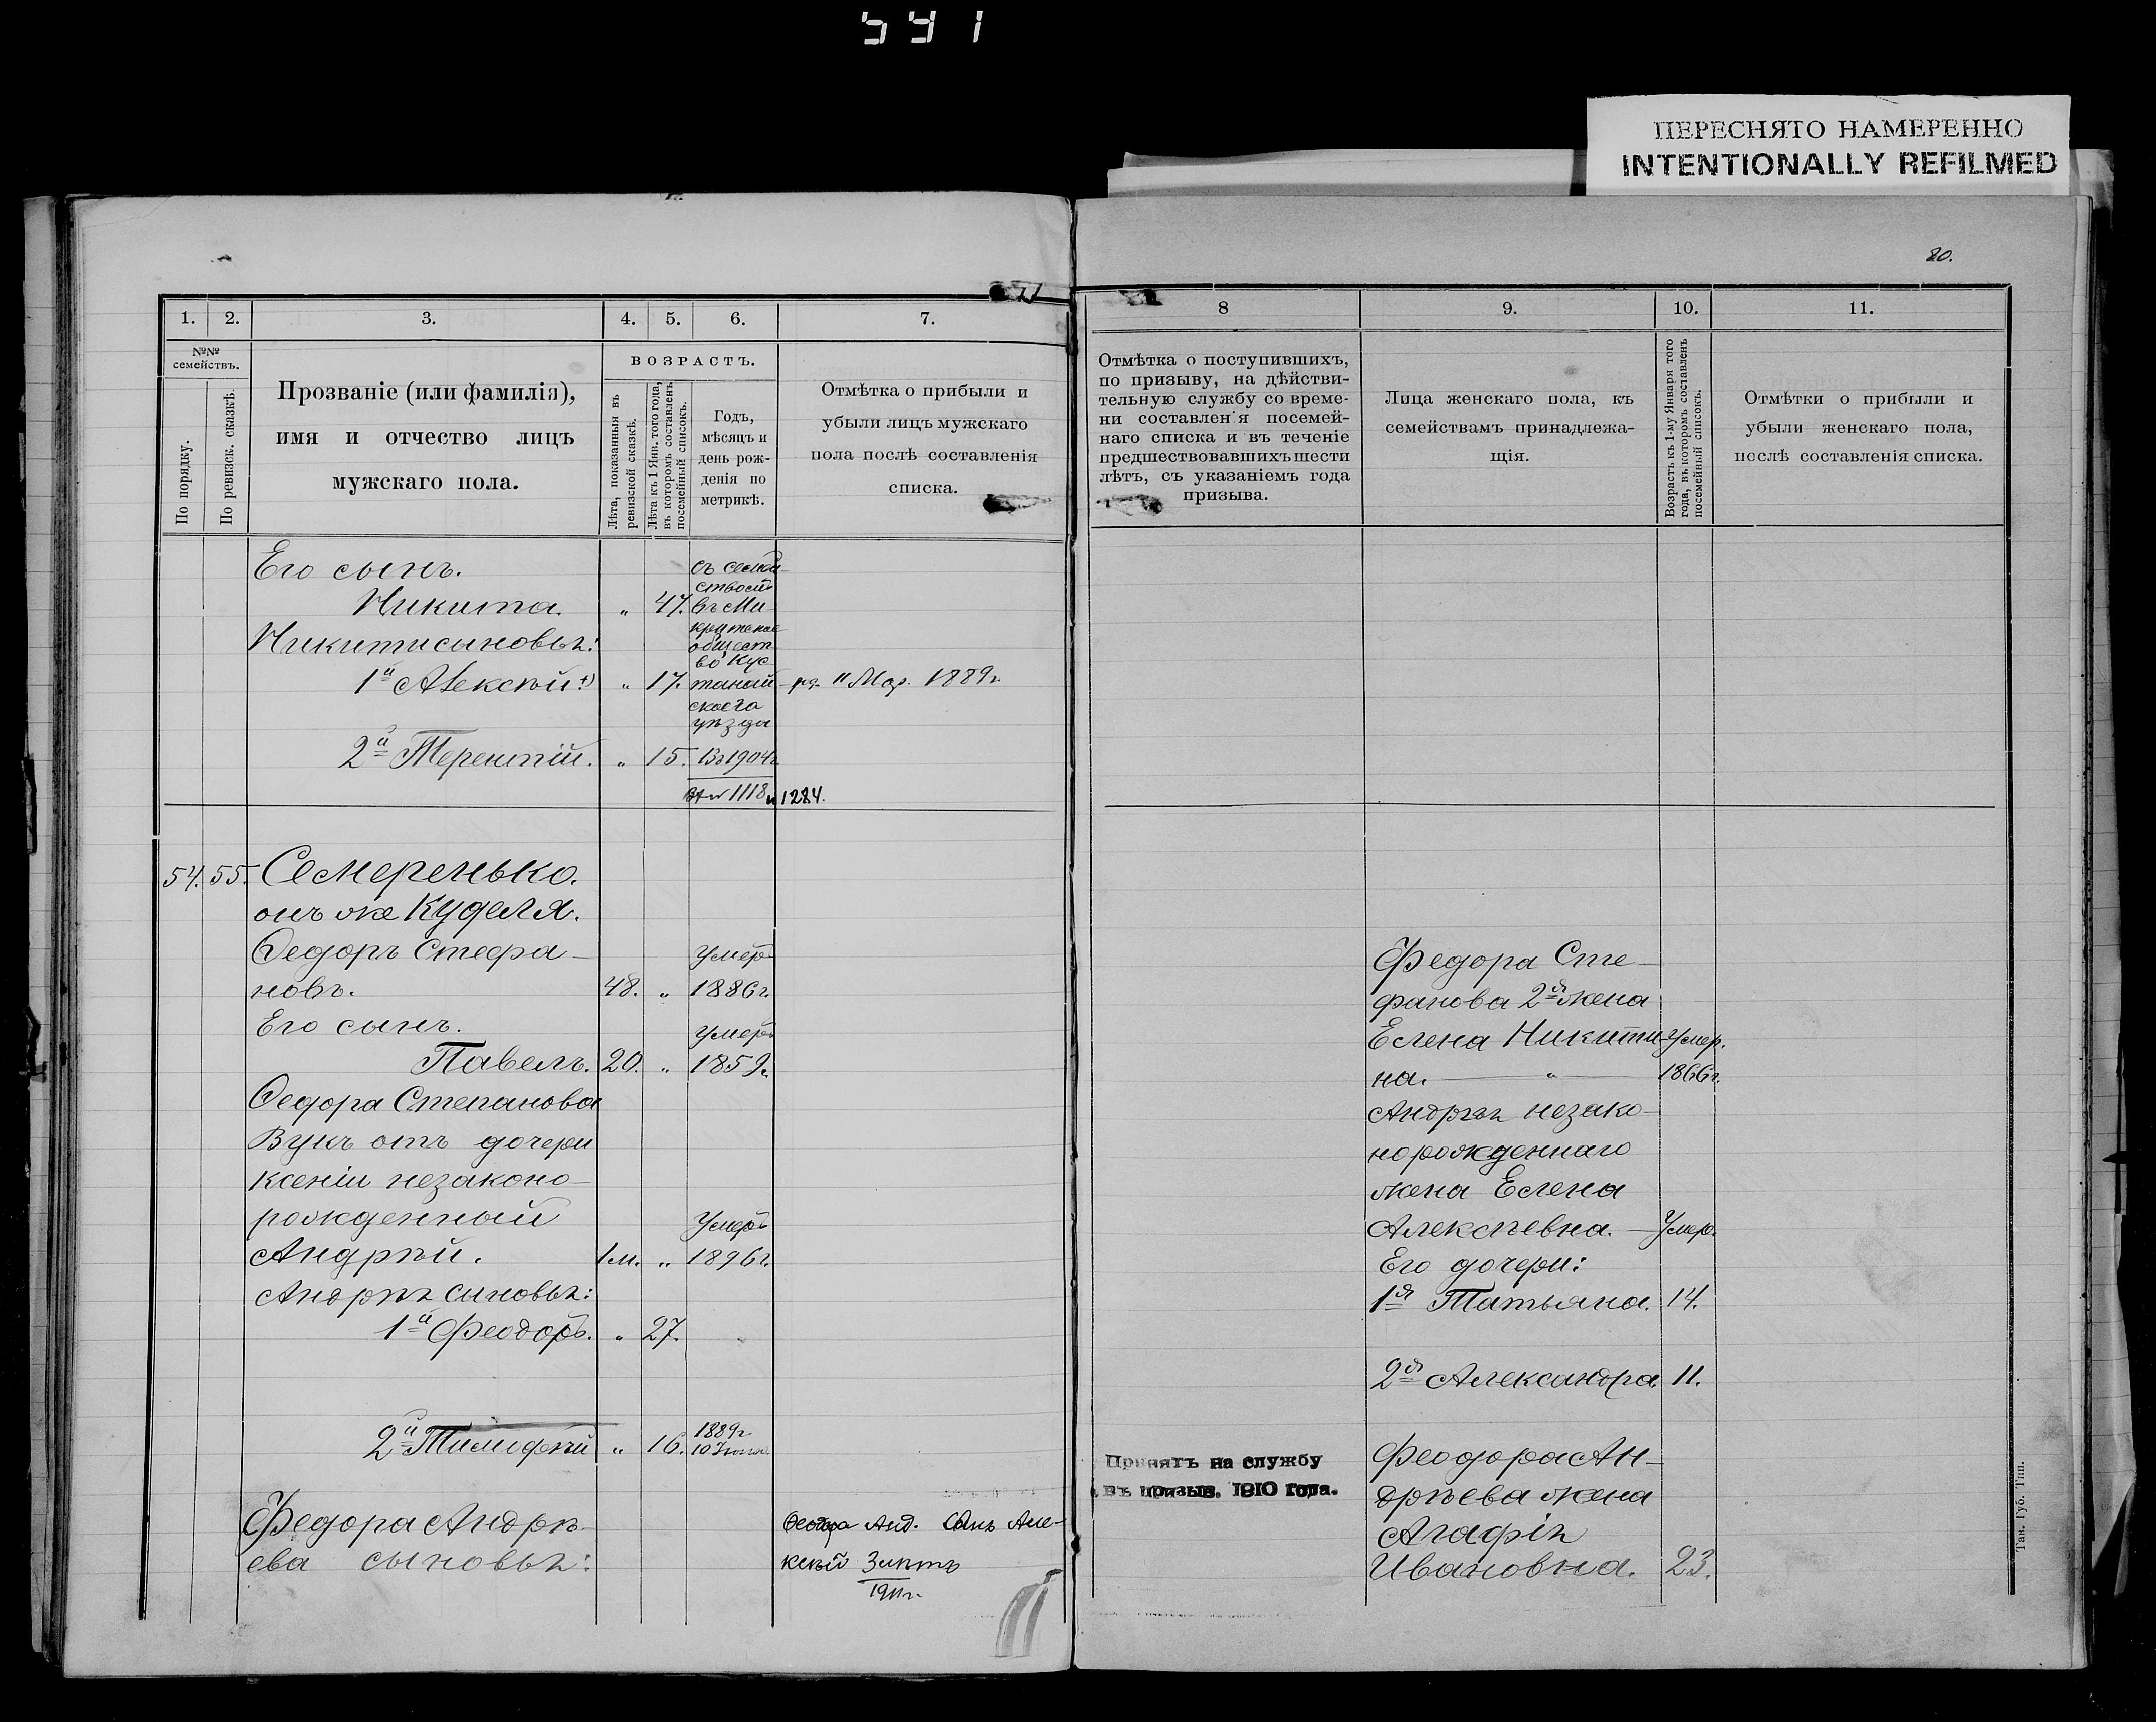 541
ПЕРЕСНЯТО НАМЕРЕННО
INTENTIONALLY REFILMED
80.
1. 2. 3. 4. 5. 6. 7.
№№ семействъ.
По порядку.
По ревизск. сказкѣ.
Прозваніе (или фамилія),
имя и отчество лицъ
мужскаго пола.
ВОЗРАСТЪ.
Лѣта, показанныя въ
ревизской сказкѣ.
Лѣта къ 1 Янв. того года,
въ которомъ составленъ
посемейный списокъ.
Годъ,
мѣсяцъ и
день рож-
денія по
метрикѣ.
Отмѣтка о прибыли и
убыли лицъ мужскаго
пола послѣ составленія
списка.
Его сынъ.
Никита. " 47.
Никиты сыновья:
1й Алексѣй " 17.
2й Терентій. " 15.
съ семей-
ством
въ Ми
общест
во Кус
танай
скаго
уѣзда
Въ 1904г.
1118 и 1284.
Мар. 1889г.
54. 55. Семеренько.
онъ же Куделя.
Ѳедоръ Стефа-
новъ. 48. " Умеръ 1886г.
Его сынъ.
Павелъ. 20. " Умеръ 1859г.
Ѳедора Степанова
Внукъ отъ дочери
Ксеніи незаконо-
рожденный
Андрей. 1м. " Умеръ 1896г.
Андрея сыновья:
1й Феодоръ. " 27.
2й Тимофей " 16. 1889г. 10 Іюня
Федора Андре-
ева сыновья:
Феодора Анд. сынъ Але-
ксѣй Зиптъ
1911г.
8 9. 10. 11.
Отмѣтка о поступившихъ,
по призыву, на дѣйстви-
тельную службу со време-
ни составленія посемей-
наго списка и въ теченіе
предшествовавшихъ шести
лѣтъ, съ указаніемъ года
призыва.
Лица женскаго пола, къ
семействамъ принадлежа-
щія.
Возрастъ къ 1-му Января того
года, въ которомъ составленъ
посемейный списокъ.
Отмѣтки о прибыли и
убыли женскаго пола,
послѣ составленія списка.
Федора Сте-
фанова 2я жена
Елена Никити- Умер.
на. " 1866г.
Андрея незако-
норожденнаго
жена Елена
Алексѣевна. - Умер.
Его дочери:
1я Татьяна. 14.
2я Александра. 11.
Принятъ на службу
въ призыв. 1910 года.
Феодора Ан-
дреева жена
Агафія
Ивановна. 23.
Тав. Губ. Тип.